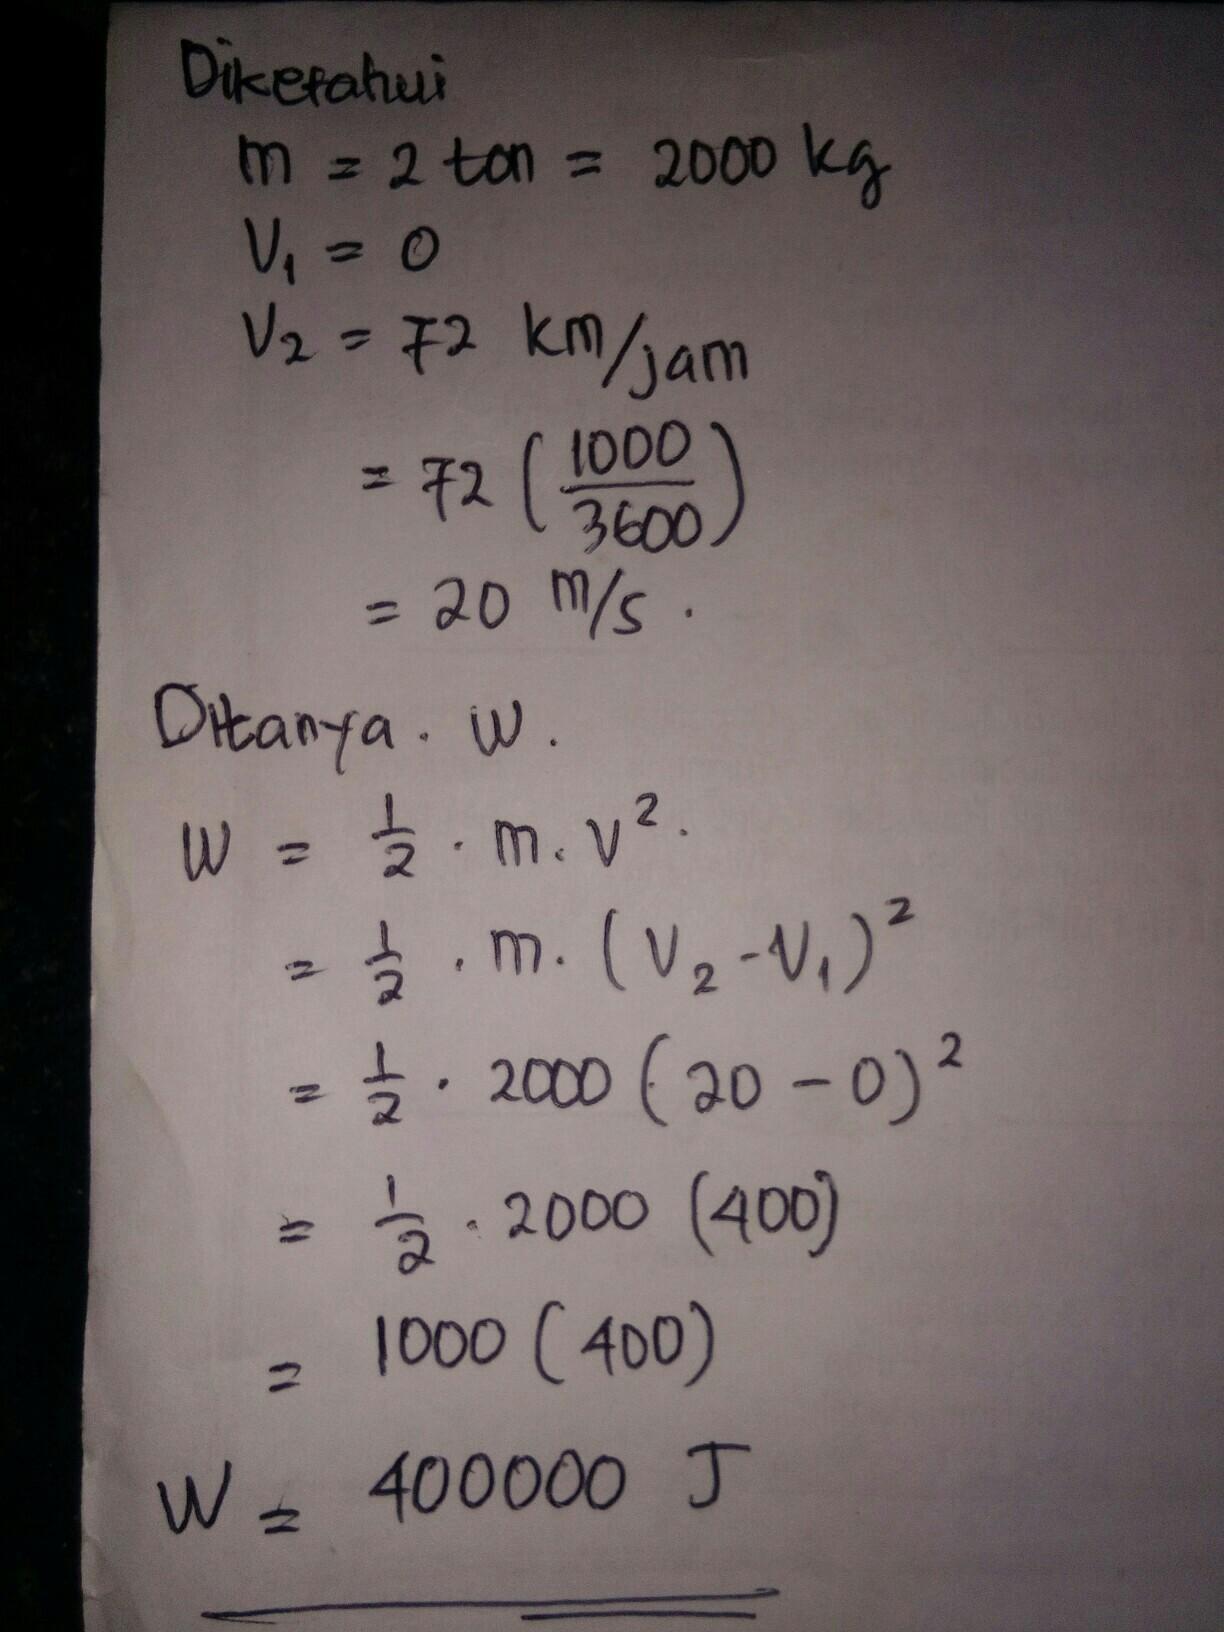 Diketahui
m = 2 ton = 2000 kg
V₁ = 0
V₂ = 72 km/jam
= 72 (1000/3600)
= 20 m/s.
Ditanya. W.
W = 1/2 . m. v².
= 1/2 . m. (V₂ - V₁)²
= 1/2 . 2000 (20 - 0)²
= 1/2 . 2000 (400)
= 1000 (400)
W = 400000 J